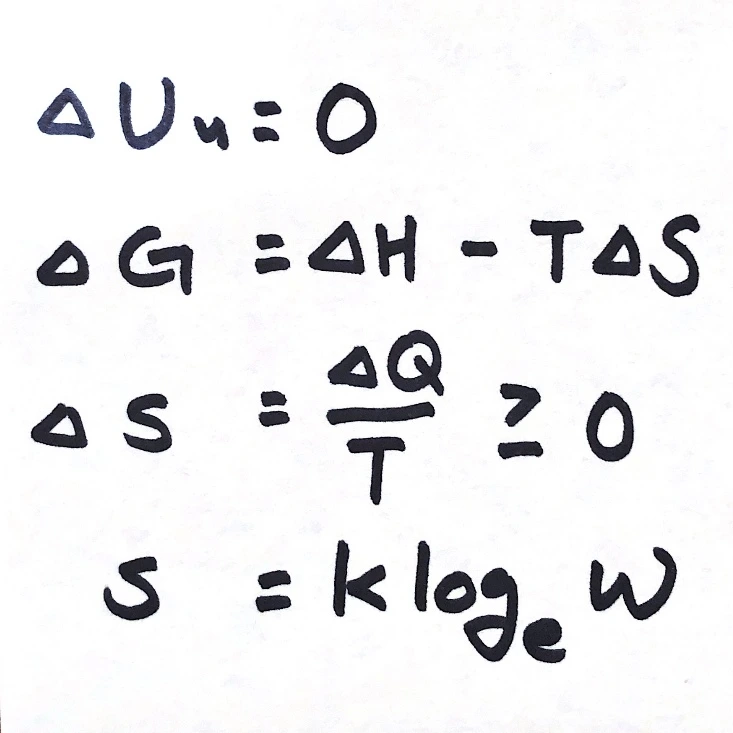 ΔUu = 0
ΔG = ΔH - TΔS
ΔS = ΔQ/T ≥ 0
S = k logₑ W